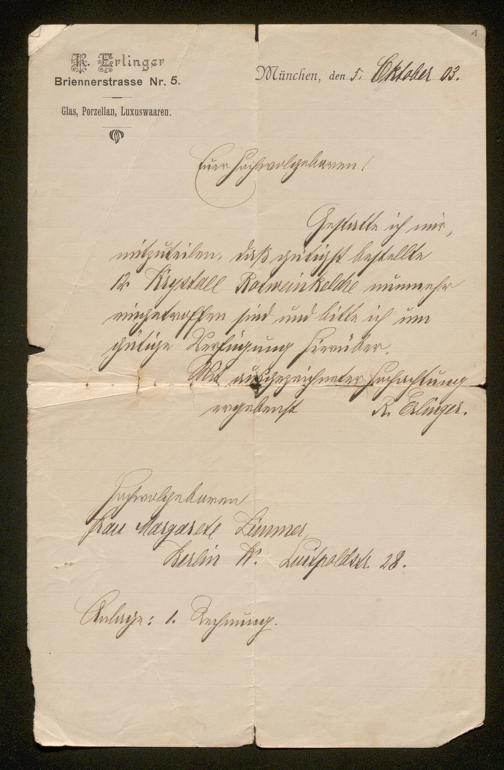 R. Erlinger
Briennerstrasse Nr. 5.
Glas, Porzellan, Luxuswaaren.
München, den 5. Oktober 03.
Euer Hochwolgeboren!
Gestatte ich mir,
mitzuteilen, daß gütigst bestellte
12 Krystall Rotweinkelche nunmehr
eingetroffen sind und bitte ich um
gütige Verfügung hierüber.
Mit ausgezeichneter Hochachtung
ergebenst R. Erlinger.
Hochwolgeboren
Frau Margarete
Berlin W. Luitpoldstr. 28.
Anlage: 1. Rechnung.